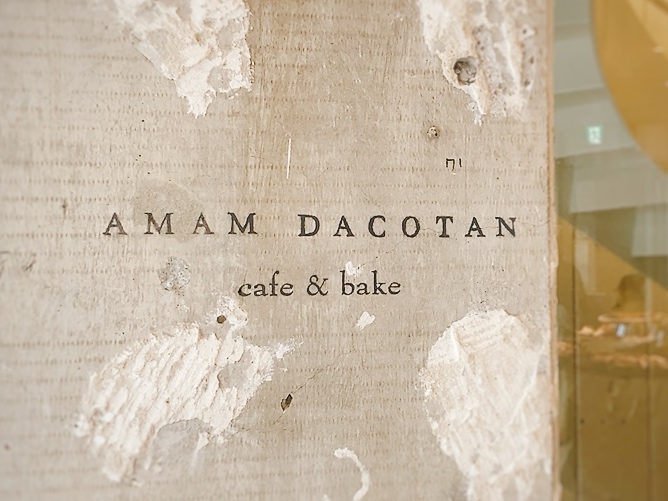 AMAM DACOTAN
cafe & bake